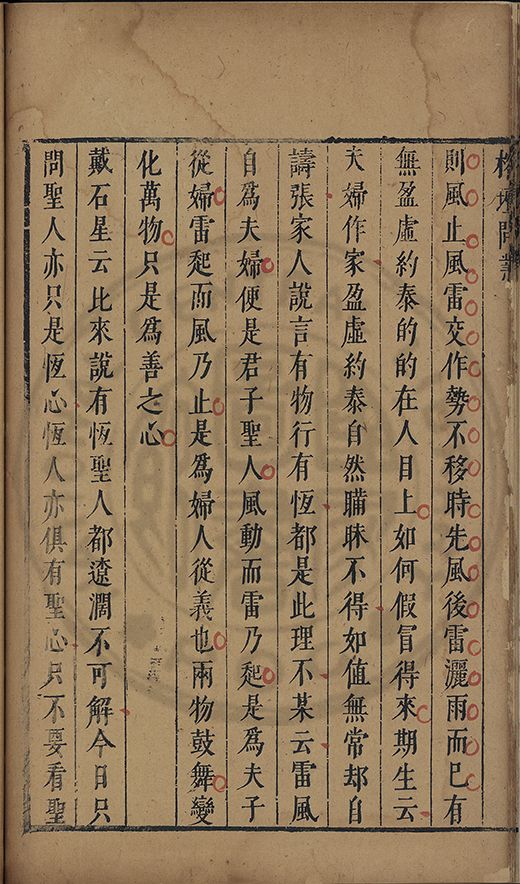 榕壇問業
則風止風雷交作勢不移時先風後雷灑雨而已有
無盈虛約泰的的在人目上如何假冒得來期生云
夫婦作家盈虛約泰自然瞞昧不得如值無常却自
譸張家人說言有物行有恆都是此理不某云雷風
自為夫婦便是君子聖人風動而雷乃起是為夫子
從婦雷起而風乃止是為婦人從義也兩物鼓舞變
化萬物只是為善之心
戴石星云比來說有恆聖人都遼濶不可解今日只
問聖人亦只是恆心恆人亦俱有聖心只不要看聖